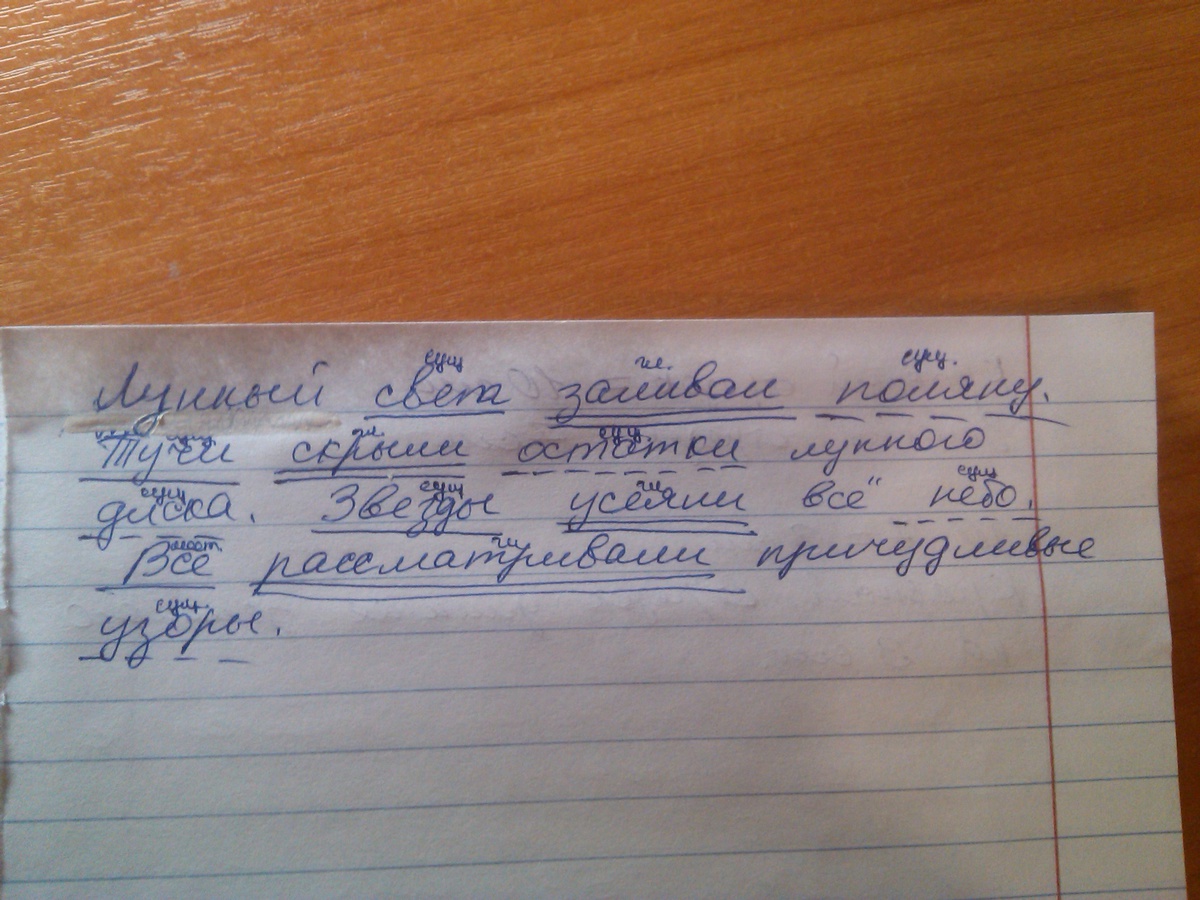 сущ гл. сущ.
Лунный свет заливал поляну.
сущ. гл. сущ
Тучи скрыли остатки лунного
сущ сущ гл сущ
диска. Звезды усеяли всё небо.
мест. гл.
Все рассматривали причудливые
сущ.
узоры.